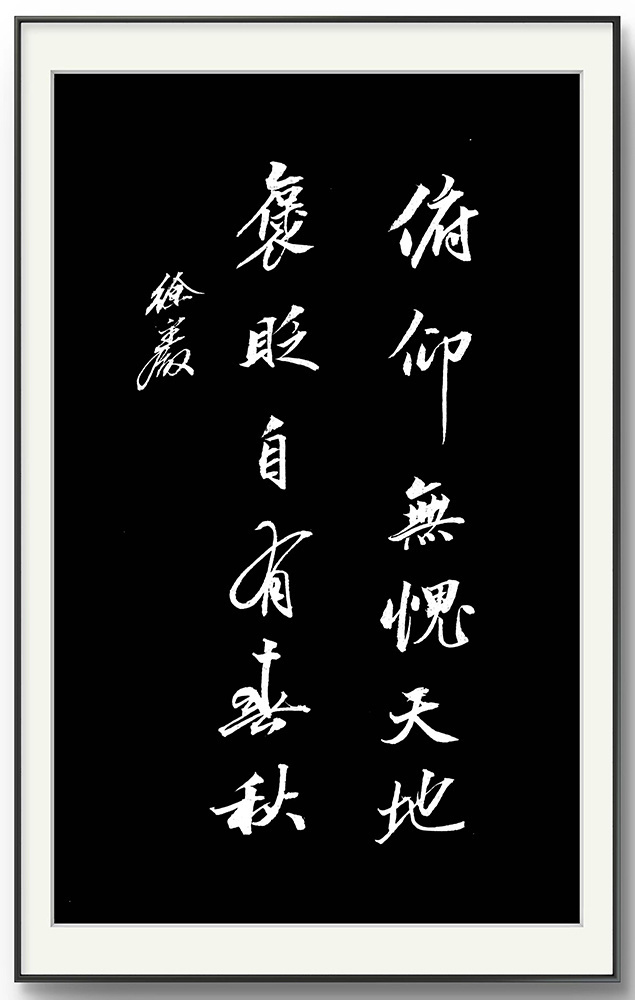 俯仰無愧天地
褒貶自有春秋
徐